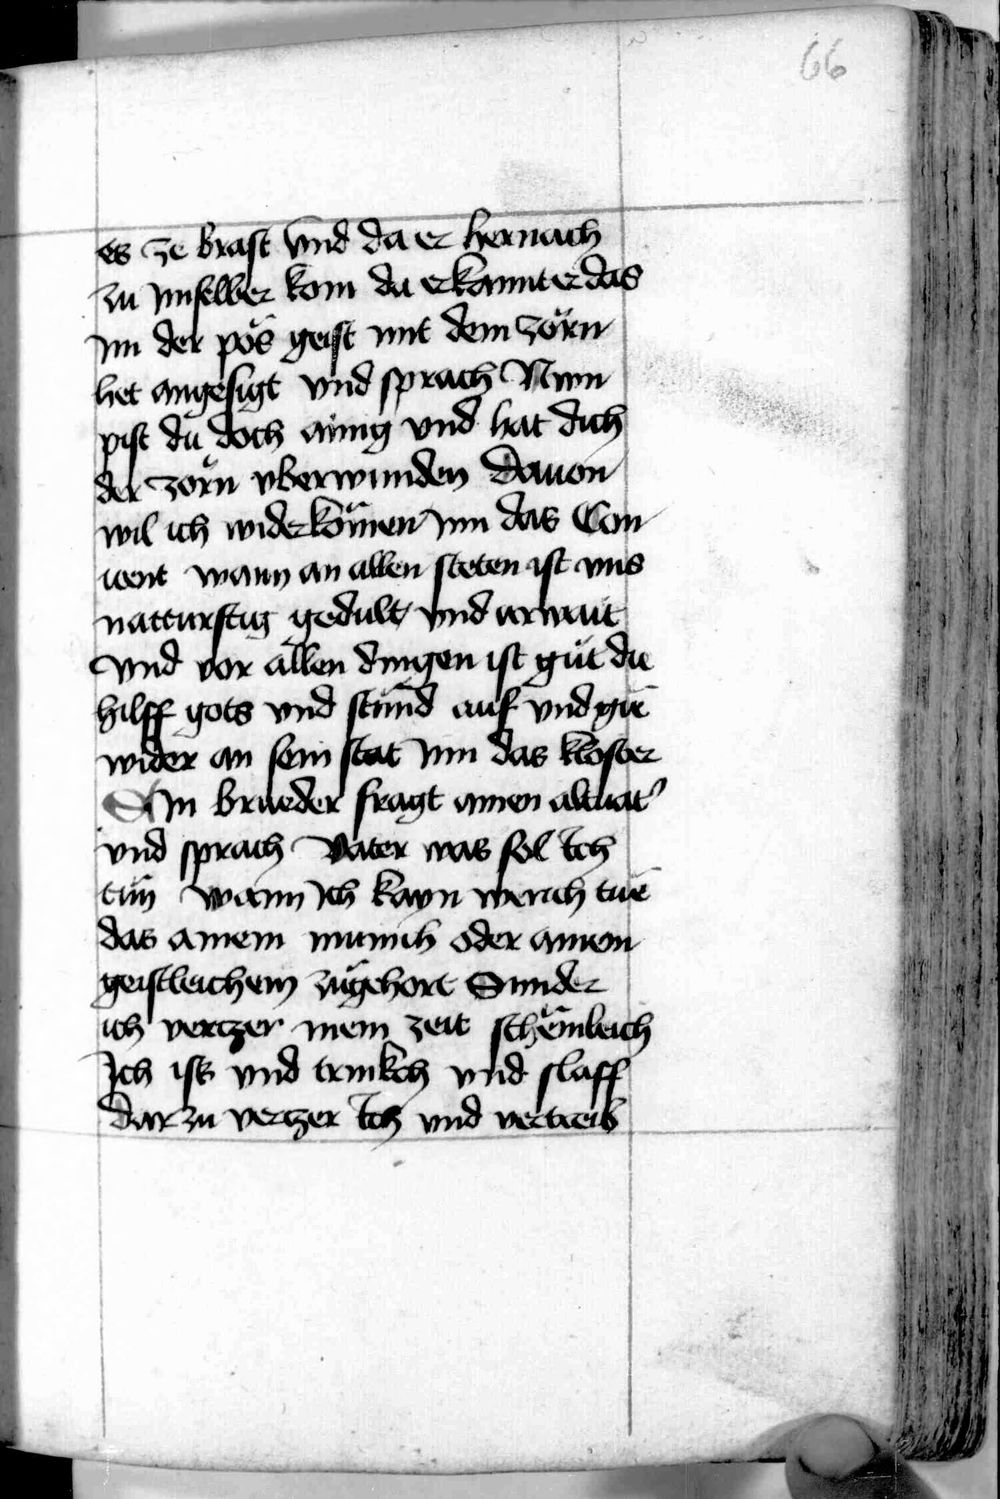 66
es ze brast Vnd da er hernach
zu ym selber kom da erkannt er das
ym der pös geist mit dem zorn
het angesigt vnd sprach Nun
pist du doch ainig vnd hat dich
der zorn vberwunden Dauon
wil ich widerkömen ym das Con
uent wann an allen steten ist vns
natturftig gedult vnd arwait
Vnd vor allen dingen ist güt die
hilff gots vnd stünd auf vnd gie
wider an sein stat ym das kloster
Ain brueder fragt ainen altuat'
vnd sprach Vater was sol Ich
tün Wann Ich kayn werch tue
das ainem munich oder ainem
geistleichem zügehort Sunder
ich vertzer mein zeit schemleich
Ich iss vnd trinkch vnd slaff
Dar zu vertzer Ich vnd vertreib